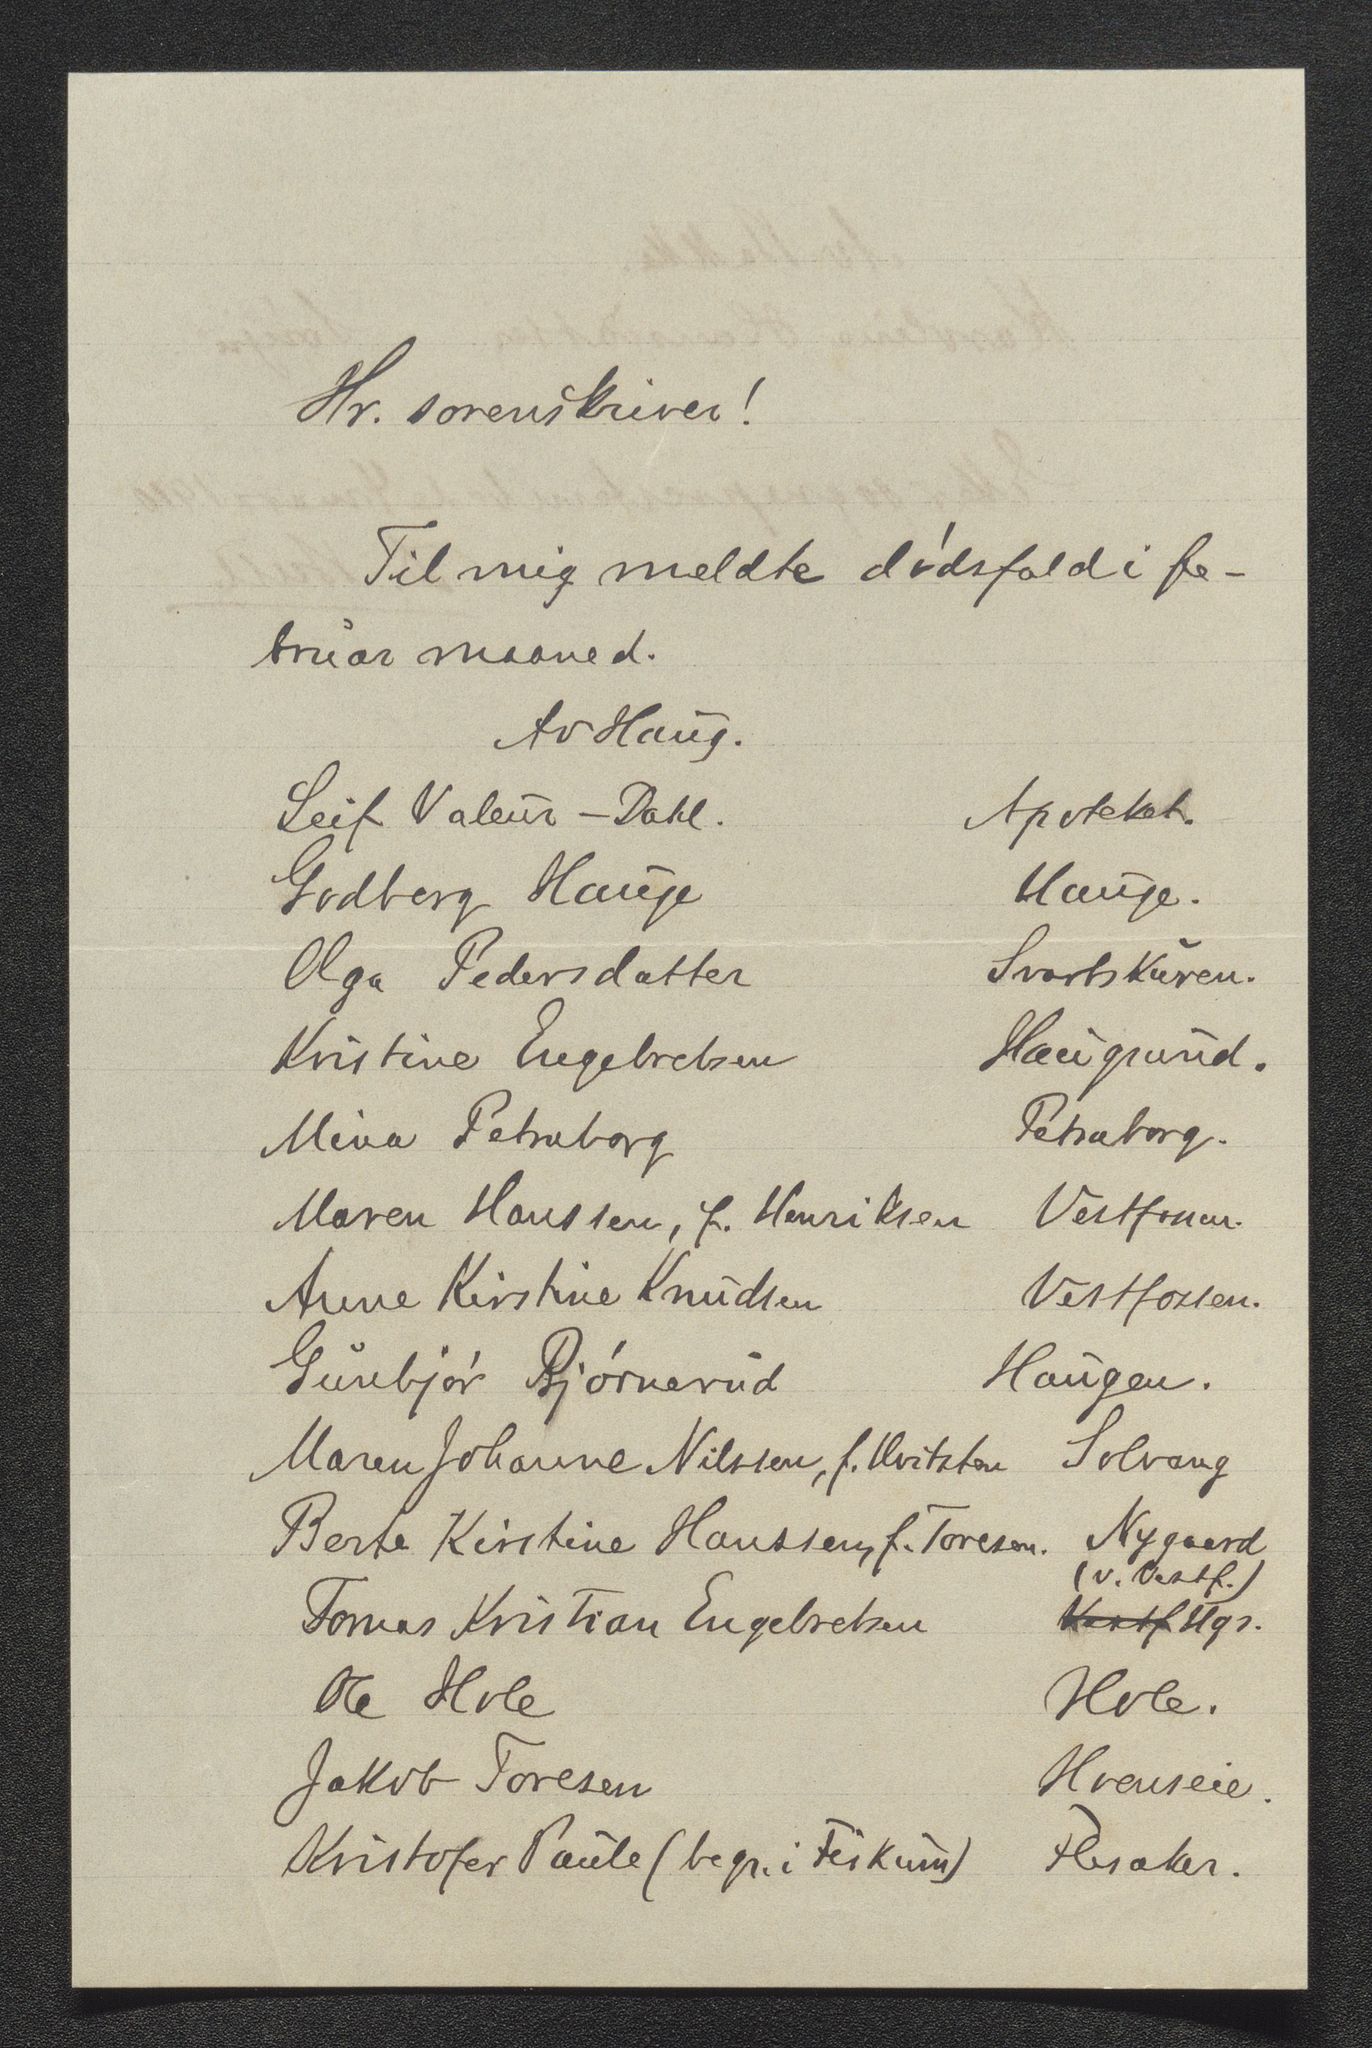 Hr. sorenskriver!
Til mig meldte dødsfald i fe-
bruar maaned.
Av Haug.
Leif Valeur-Dahl. Apoteket.
Godberg Hauge Hauge.
Olga Pedersdatter Svartskuren.
Kristine Engebretsen Haugrund.
Mina Petraborg Petraborg.
Maren Hanssen, f. Henriksen Vestfossen.
Anne Kirstine Knudsen Vestfossen.
Gunbjør Bjørnerud Haugen.
Maren Johanne Nilssen, f. Hvitsten Solvang
Berte Kirstine Hanssen, f. Toresen. Nygaard
(v. Vestf.)
Tomas Kristian Engebretsen Vestf Hgs.
Ole Hole Hole.
Jakob Toresen Hvenseie.
Kristofer Paule (begr. i Fiskum) Flesaker.